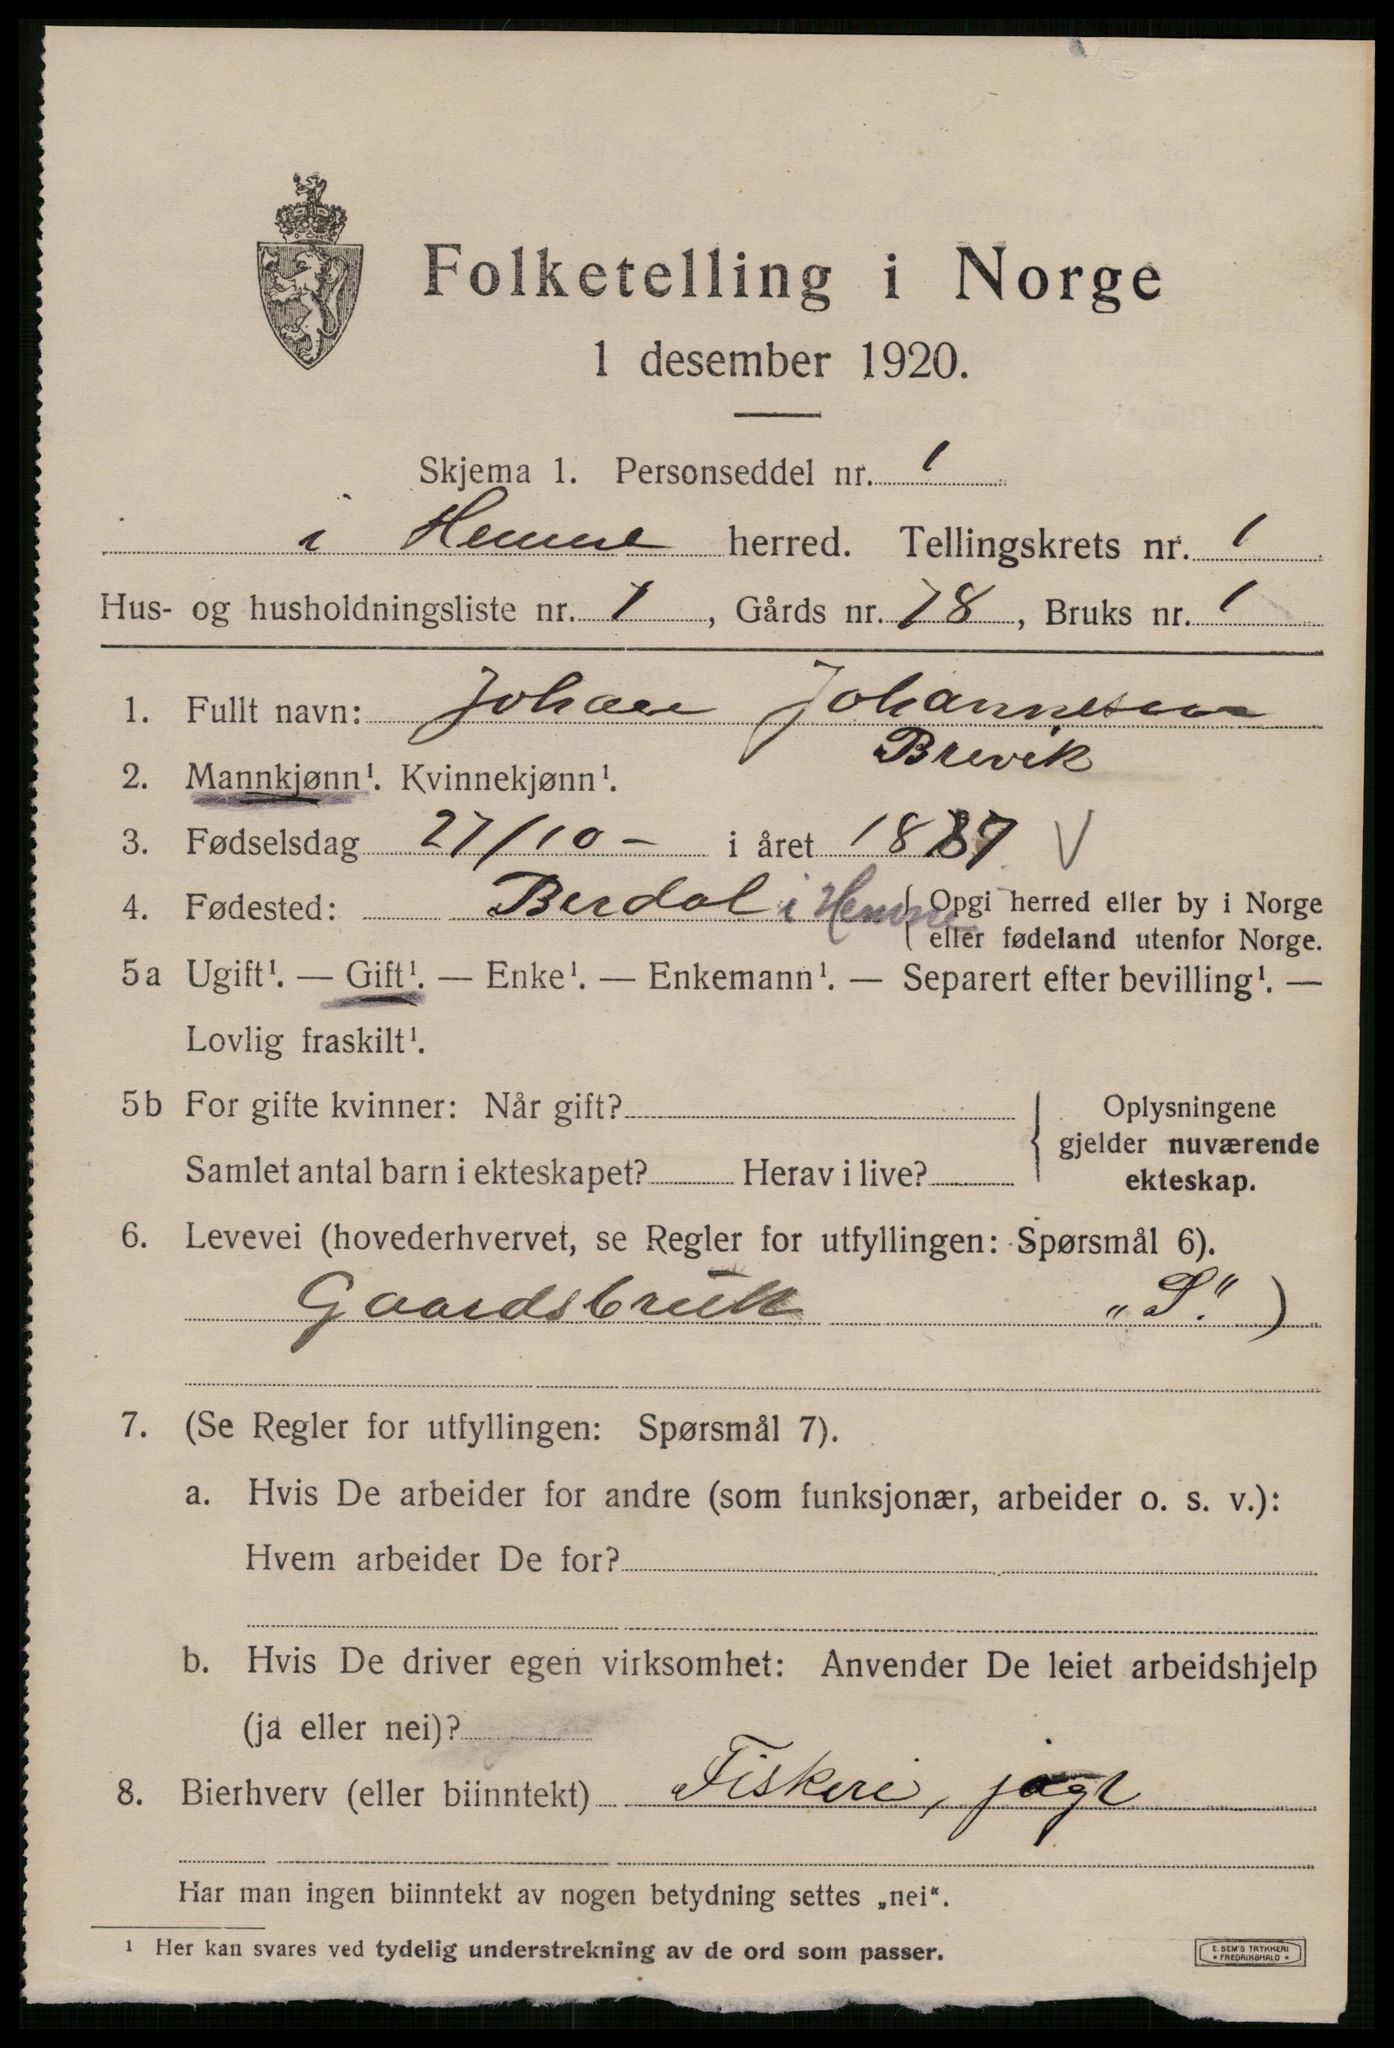 Folketelling i Norge
1 desember 1920.
Skjema 1. Personseddel nr. 1
i Hemne herred. Tellingskrets nr. 1
Hus- og husholdningsliste nr. 1, Gårds nr. 78, Bruks nr. 1
1. Fullt navn: Johan Johannesen
Brevik
2. Mannkjønn¹. Kvinnekjønn¹.
3. Fødselsdag 27/10 - i året 1887 V
4. Fødested: Berdal i Hemne { Opgi herred eller by i Norge
eller fødeland utenfor Norge.
5a Ugift¹. — Gift¹. — Enke¹. — Enkemann¹. — Separert efter bevilling¹. —
Lovlig fraskilt¹.
5b For gifte kvinner: Når gift? { Oplysningene
gjelder nuværende
Samlet antal barn i ekteskapet? Herav i live? ekteskap.
6. Levevei (hovederhvervet, se Regler for utfyllingen: Spørsmål 6).
Gaardsbruk „S.“ )
7. (Se Regler for utfyllingen: Spørsmål 7).
a. Hvis De arbeider for andre (som funksjonær, arbeider o. s. v.):
Hvem arbeider De for?
b. Hvis De driver egen virksomhet: Anvender De leiet arbeidshjelp
(ja eller nei)?
8. Bierhverv (eller biinntekt) Fiskeri, jagt
Har man ingen biinntekt av nogen betydning settes „nei“.
¹ Her kan svares ved tydelig understrekning av de ord som passer.
E. SEM'S TRYKKERI
• FREDRIKSHALD •